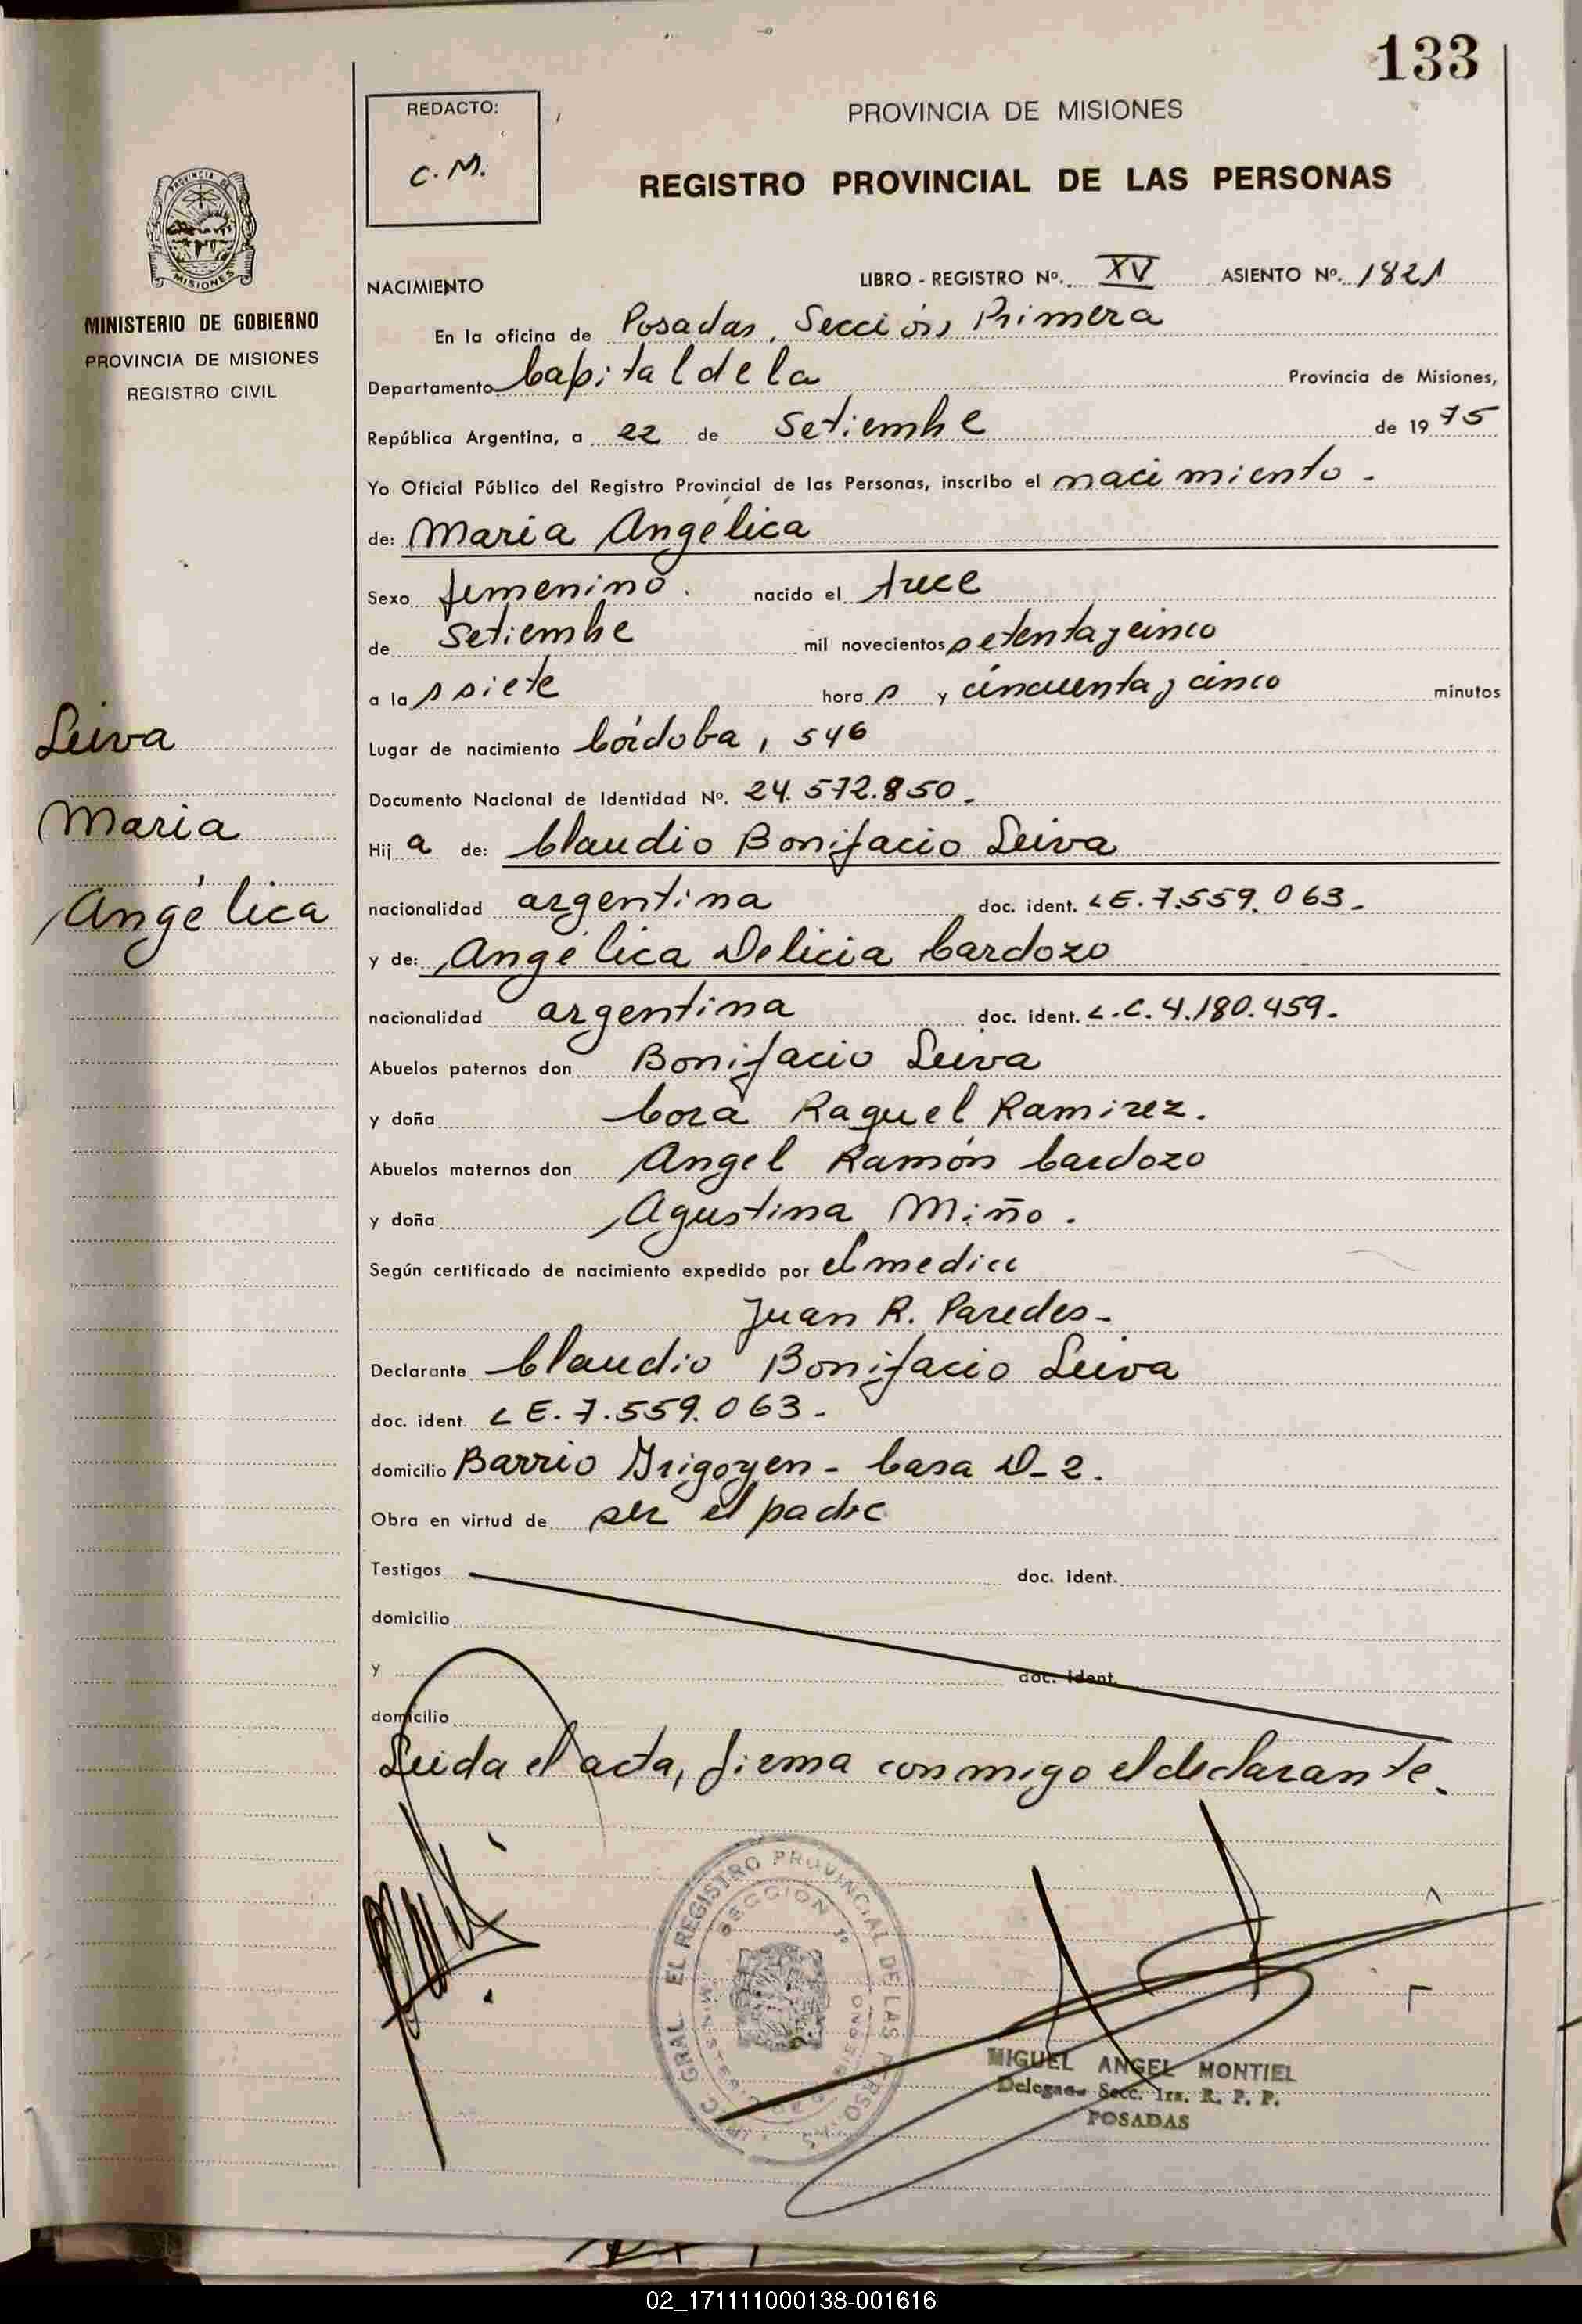 133
REDACTO:
C. M.
PROVINCIA DE MISIONES
REGISTRO PROVINCIAL DE LAS PERSONAS
PROVINCIA DE
MISIONES
MINISTERIO DE GOBIERNO
PROVINCIA DE MISIONES
REGISTRO CIVIL
NACIMIENTO
LIBRO - REGISTRO Nº. XV ASIENTO Nº. 1821
En la oficina de Posadas, Sección Primera
Departamento Capital de la Provincia de Misiones,
República Argentina, a 22 de Setiembre de 1975
Yo Oficial Público del Registro Provincial de las Personas, inscribo el nacimiento.
de: Maria Angélica
Sexo femenino. nacido el trece
de Setiembre mil novecientos setenta y cinco
a la s siete hora s y cincuenta y cinco minutos
Leiva
Maria
Angélica
Lugar de nacimiento Córdoba, 546
Documento Nacional de Identidad Nº. 24.572.850.
Hij a de: Claudio Bonifacio Leiva
nacionalidad argentina doc. ident. LE. 7.559.063.
y de: Angélica Delicia Cardozo
nacionalidad argentina doc. ident. L.C. 4.180.459.
Abuelos paternos don Bonifacio Leiva
y doña Cora Raquel Ramirez.
Abuelos maternos don Angel Ramón Cardozo
y doña Agustina Miño.
Según certificado de nacimiento expedido por el medico
Juan R. Paredes-
Declarante Claudio Bonifacio Leiva
doc. ident. LE. 7.559.063-
domicilio Barrio Irigoyen - Casa D-2.
Obra en virtud de ser el padre
Testigos doc. ident.
domicilio
y doc. ident.
domicilio
Leida el acta, firma conmigo el declarante.
GRAL. EL REGISTRO PROVINCIAL DE LAS PERSONAS
SECCION 1º
MIGUEL ANGEL MONTIEL
Delegado Secc. 1ra. R. P. P.
POSADAS
02_171111000138-001616